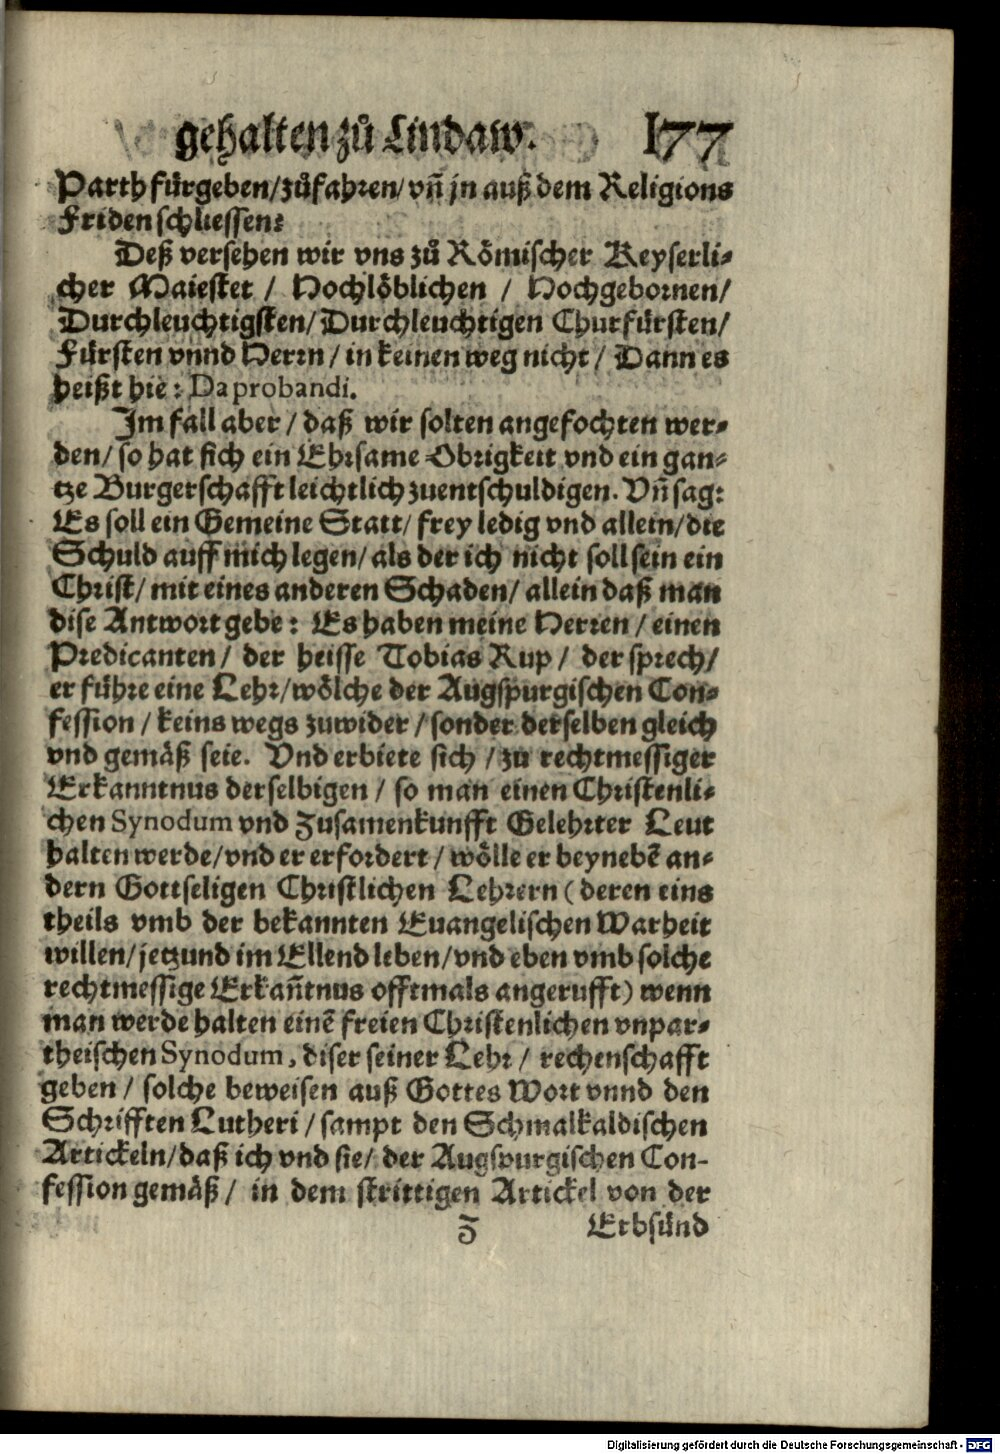 gehalten zů Lindaw. 177
Parth fürgeben/ zůfahren/ vñ jn auß dem Religions
Friden schliessen:
Deß versehen wir vns zů Römischer Keyserli-
cher Maiestet / Hochlöblichen / Hochgebornen/
Durchleuchtigsten/ Durchleuchtigen Churfürsten/
Fürsten vnnd Herrn / in keinen weg nicht / Dann es
heißt hie: Da probandi.
Im fall aber / daß wir solten angefochten wer-
den/ so hat sich ein Ehrsame Obrigkeit vnd ein gan-
tze Burgerschafft leichtlich zuentschuldigen. Vñ sag:
Es soll ein Gemeine Statt/ frey ledig vnd allein/ die
Schuld auff mich legen/ als der ich nicht soll sein ein
Christ/ mit eines anderen Schaden/ allein daß man
dise Antwort gebe: Es haben meine Herren / einen
Predicanten / der heisse Tobias Rup / der sprech/
er führe eine Lehr/ wölche der Augspurgischen Con-
fession / keins wegs zuwider / sonder derselben gleich
vnd gemäß seie. Vnd erbiete sich / zu rechtmessiger
Erkanntnus derselbigen / so man einen Christenli-
chen Synodum vnd Zusamenkunfft Gelehrter Leut
halten werde/ vnd er erfordert / wölle er beynebẽ an-
dern Gottseligen Christlichen Lehrern (deren eins
theils vmb der bekannten Euangelischen Warheit
willen/ jetzund im Ellend leben/ vnd eben vmb solche
rechtmessige Erkañtnus offtmals angerufft) wenn
man werde halten einẽ freien Christenlichen vnpar-
theischen Synodum, diser seiner Lehr / rechenschafft
geben / solche beweisen auß Gottes Wort vnnd den
Schrifften Lutheri / sampt den Schmalkaldischen
Artickeln/ daß ich vnd sie/ der Augspurgischen Con-
fession gemäß / in dem strittigen Artickel von der
Z Erbsünd
Digitalisierung gefördert durch die Deutsche Forschungsgemeinschaft - DFG